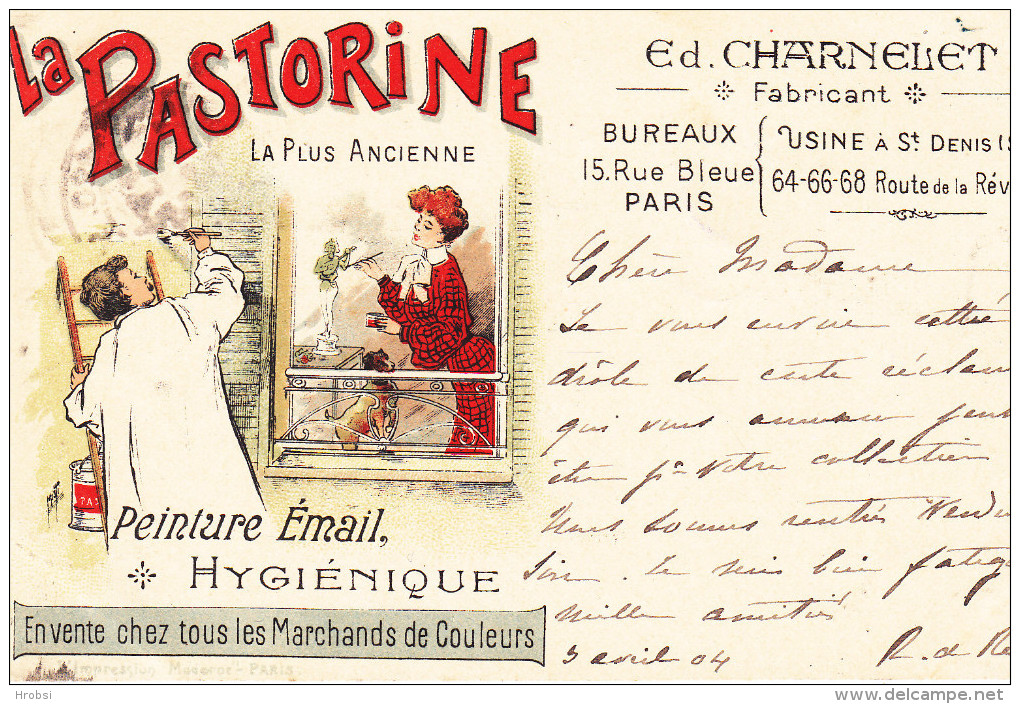 La PASTORINE
LA PLUS ANCIENNE
Peinture Émail,
HYGIÉNIQUE
En vente chez tous les Marchands de Couleurs
Impression Moderne - PARIS.
PAS
Ed. CHARNELET
Fabricant
BUREAUX
15. Rue Bleue
PARIS
USINE À St DENIS (S
64-66-68 Route de la Rév
Chère Madame
Je vous envoie cette
drôle de carte réclam
qui vous amusera peut
être pr votre collection
Nous sommes rentrés Vendre
soir. Je suis bien fatig
mille amitiés
3 avril 04 R. de
Hrobsi
delcampe.net